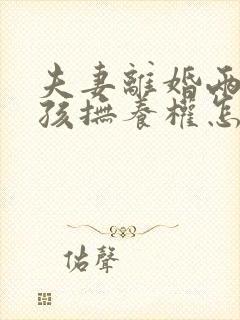 夫妻離婚兩
孩撫養權怎
佑聲